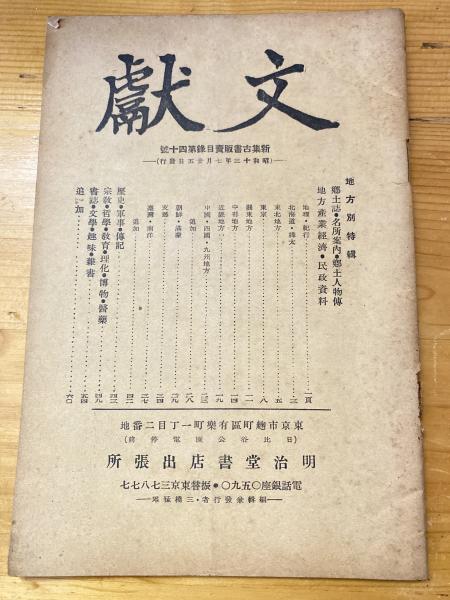 文獻
新集古書販賣目錄第四十號
(昭和十三年七月廿五日發行)
地方別特輯
鄕土誌・名所案內・鄕土人物傳
地方產業經濟・民政資料
地理・紀行
北海道・樺太
東北地方
東京
關東地方
中部地方
近畿地方
中國・四國・九州地方
追加
朝鮮・滿蒙
支那
臺灣・南洋
追加
歷史・軍事・傳記
宗敎・哲學・敎育・理化・博物・醫藥
書誌・文學・趣味・雜書
追加
東京市麴町區有樂町一丁目二番地
(日比谷公園電停前)
明治堂書店出張所
電話銀座〇五九〇・振替東京三七八七七
編輯兼發行者・三橋猛雄